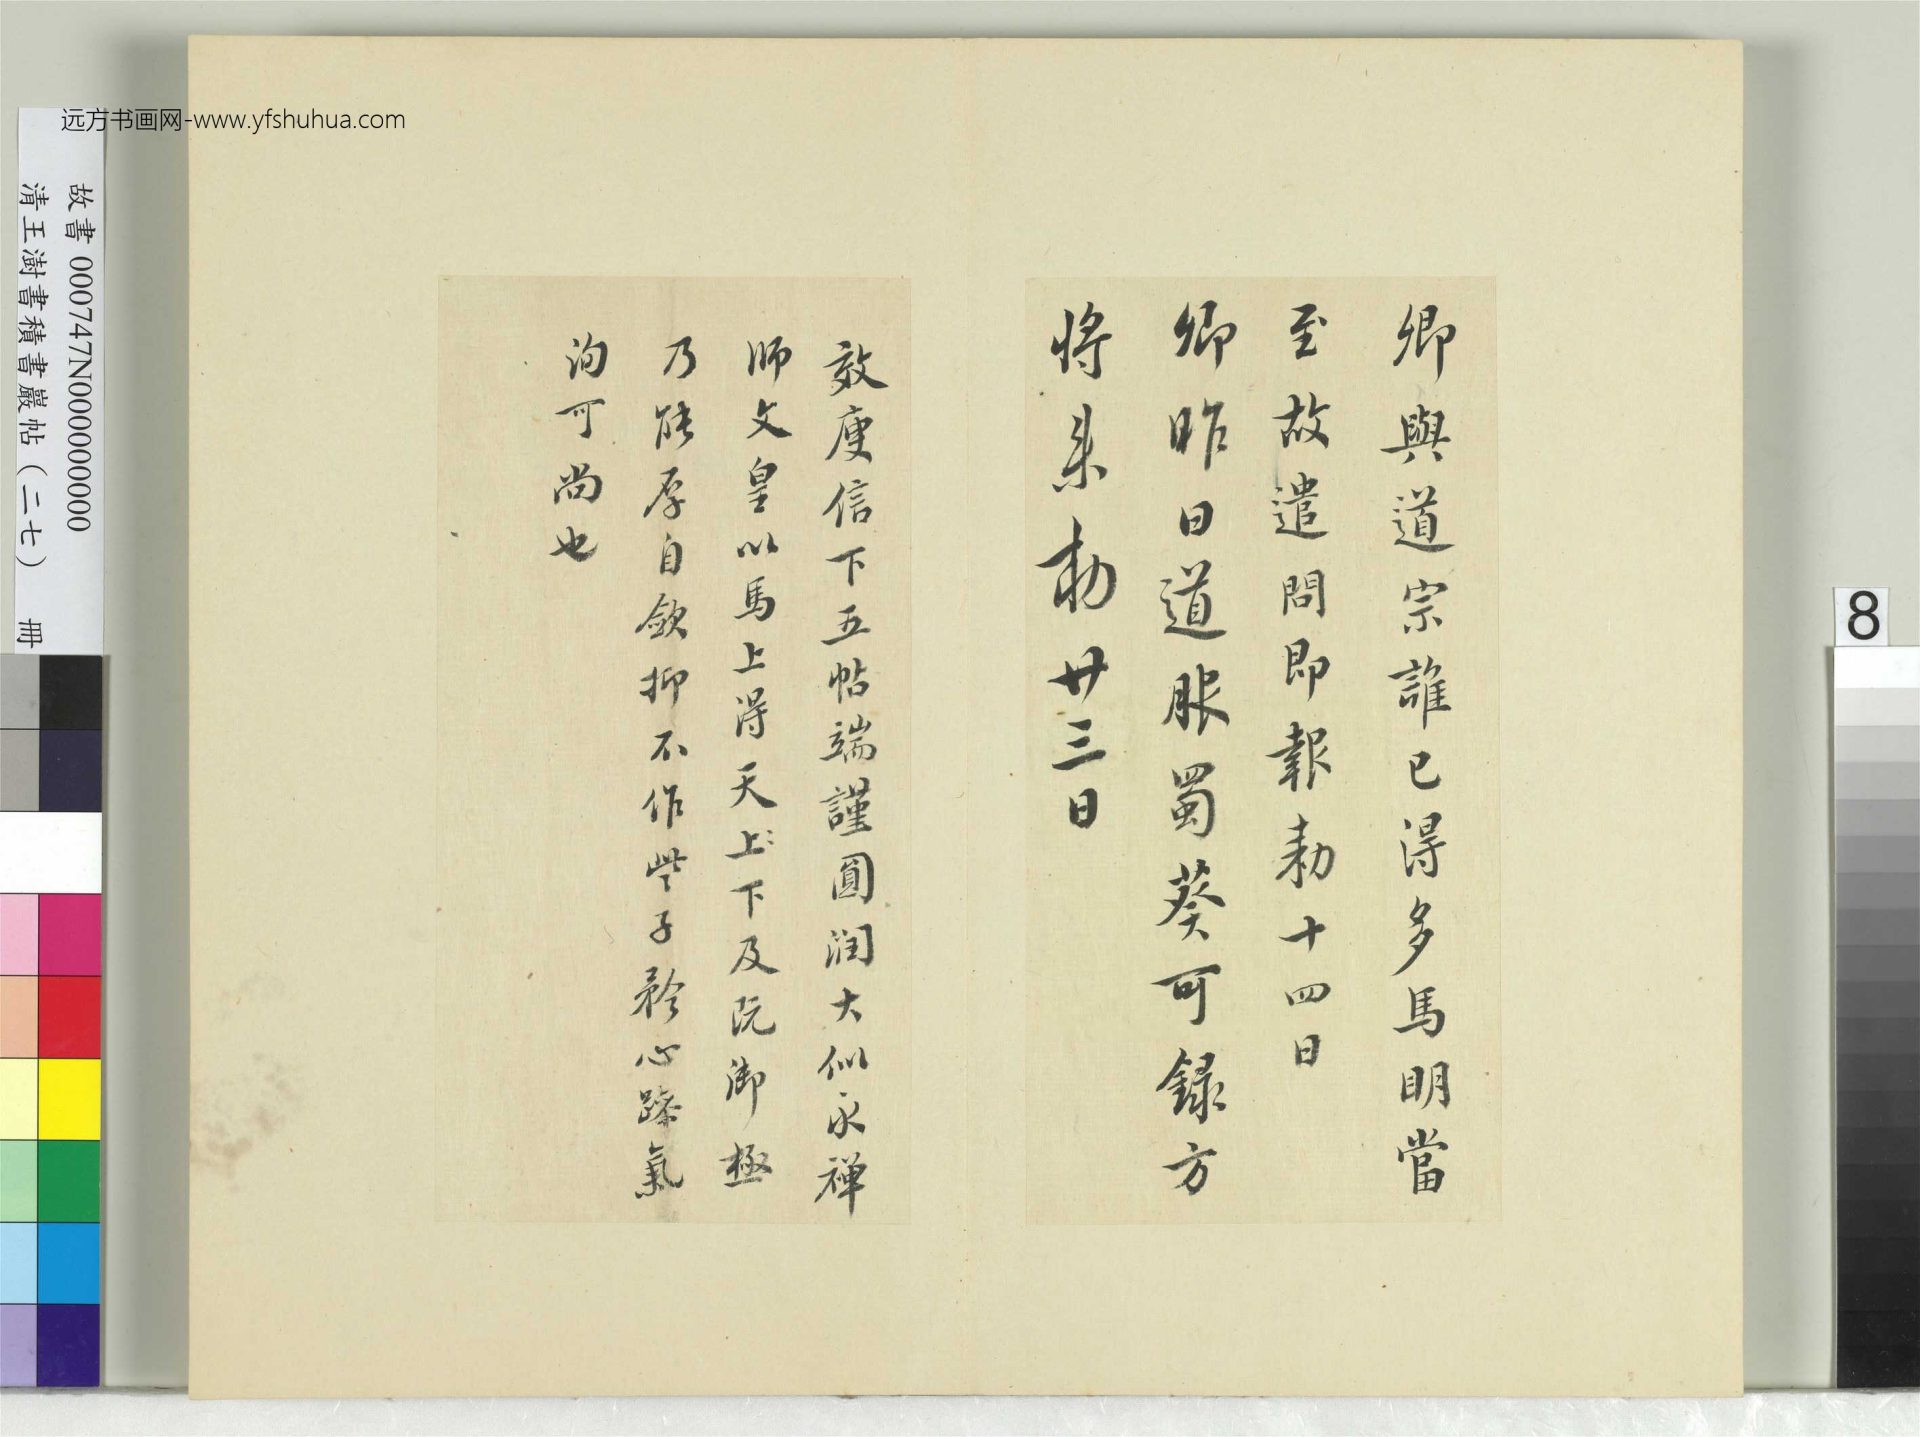 远方书画网-www.yfshuhua.com
故書 000747N000000000
清王澍書積書巖帖（二七） 冊
8
卿與道宗誰已得多馬明當
至故遣問即報勅十四日
卿昨日道服蜀葵可録方
將來勅廿三日
效庾信下五帖端謹圓潤大似永禅
師文皇以馬上得天上〻下及阮御極
乃能厚自斂抑不作些子矜心躁氣
洵可尚也